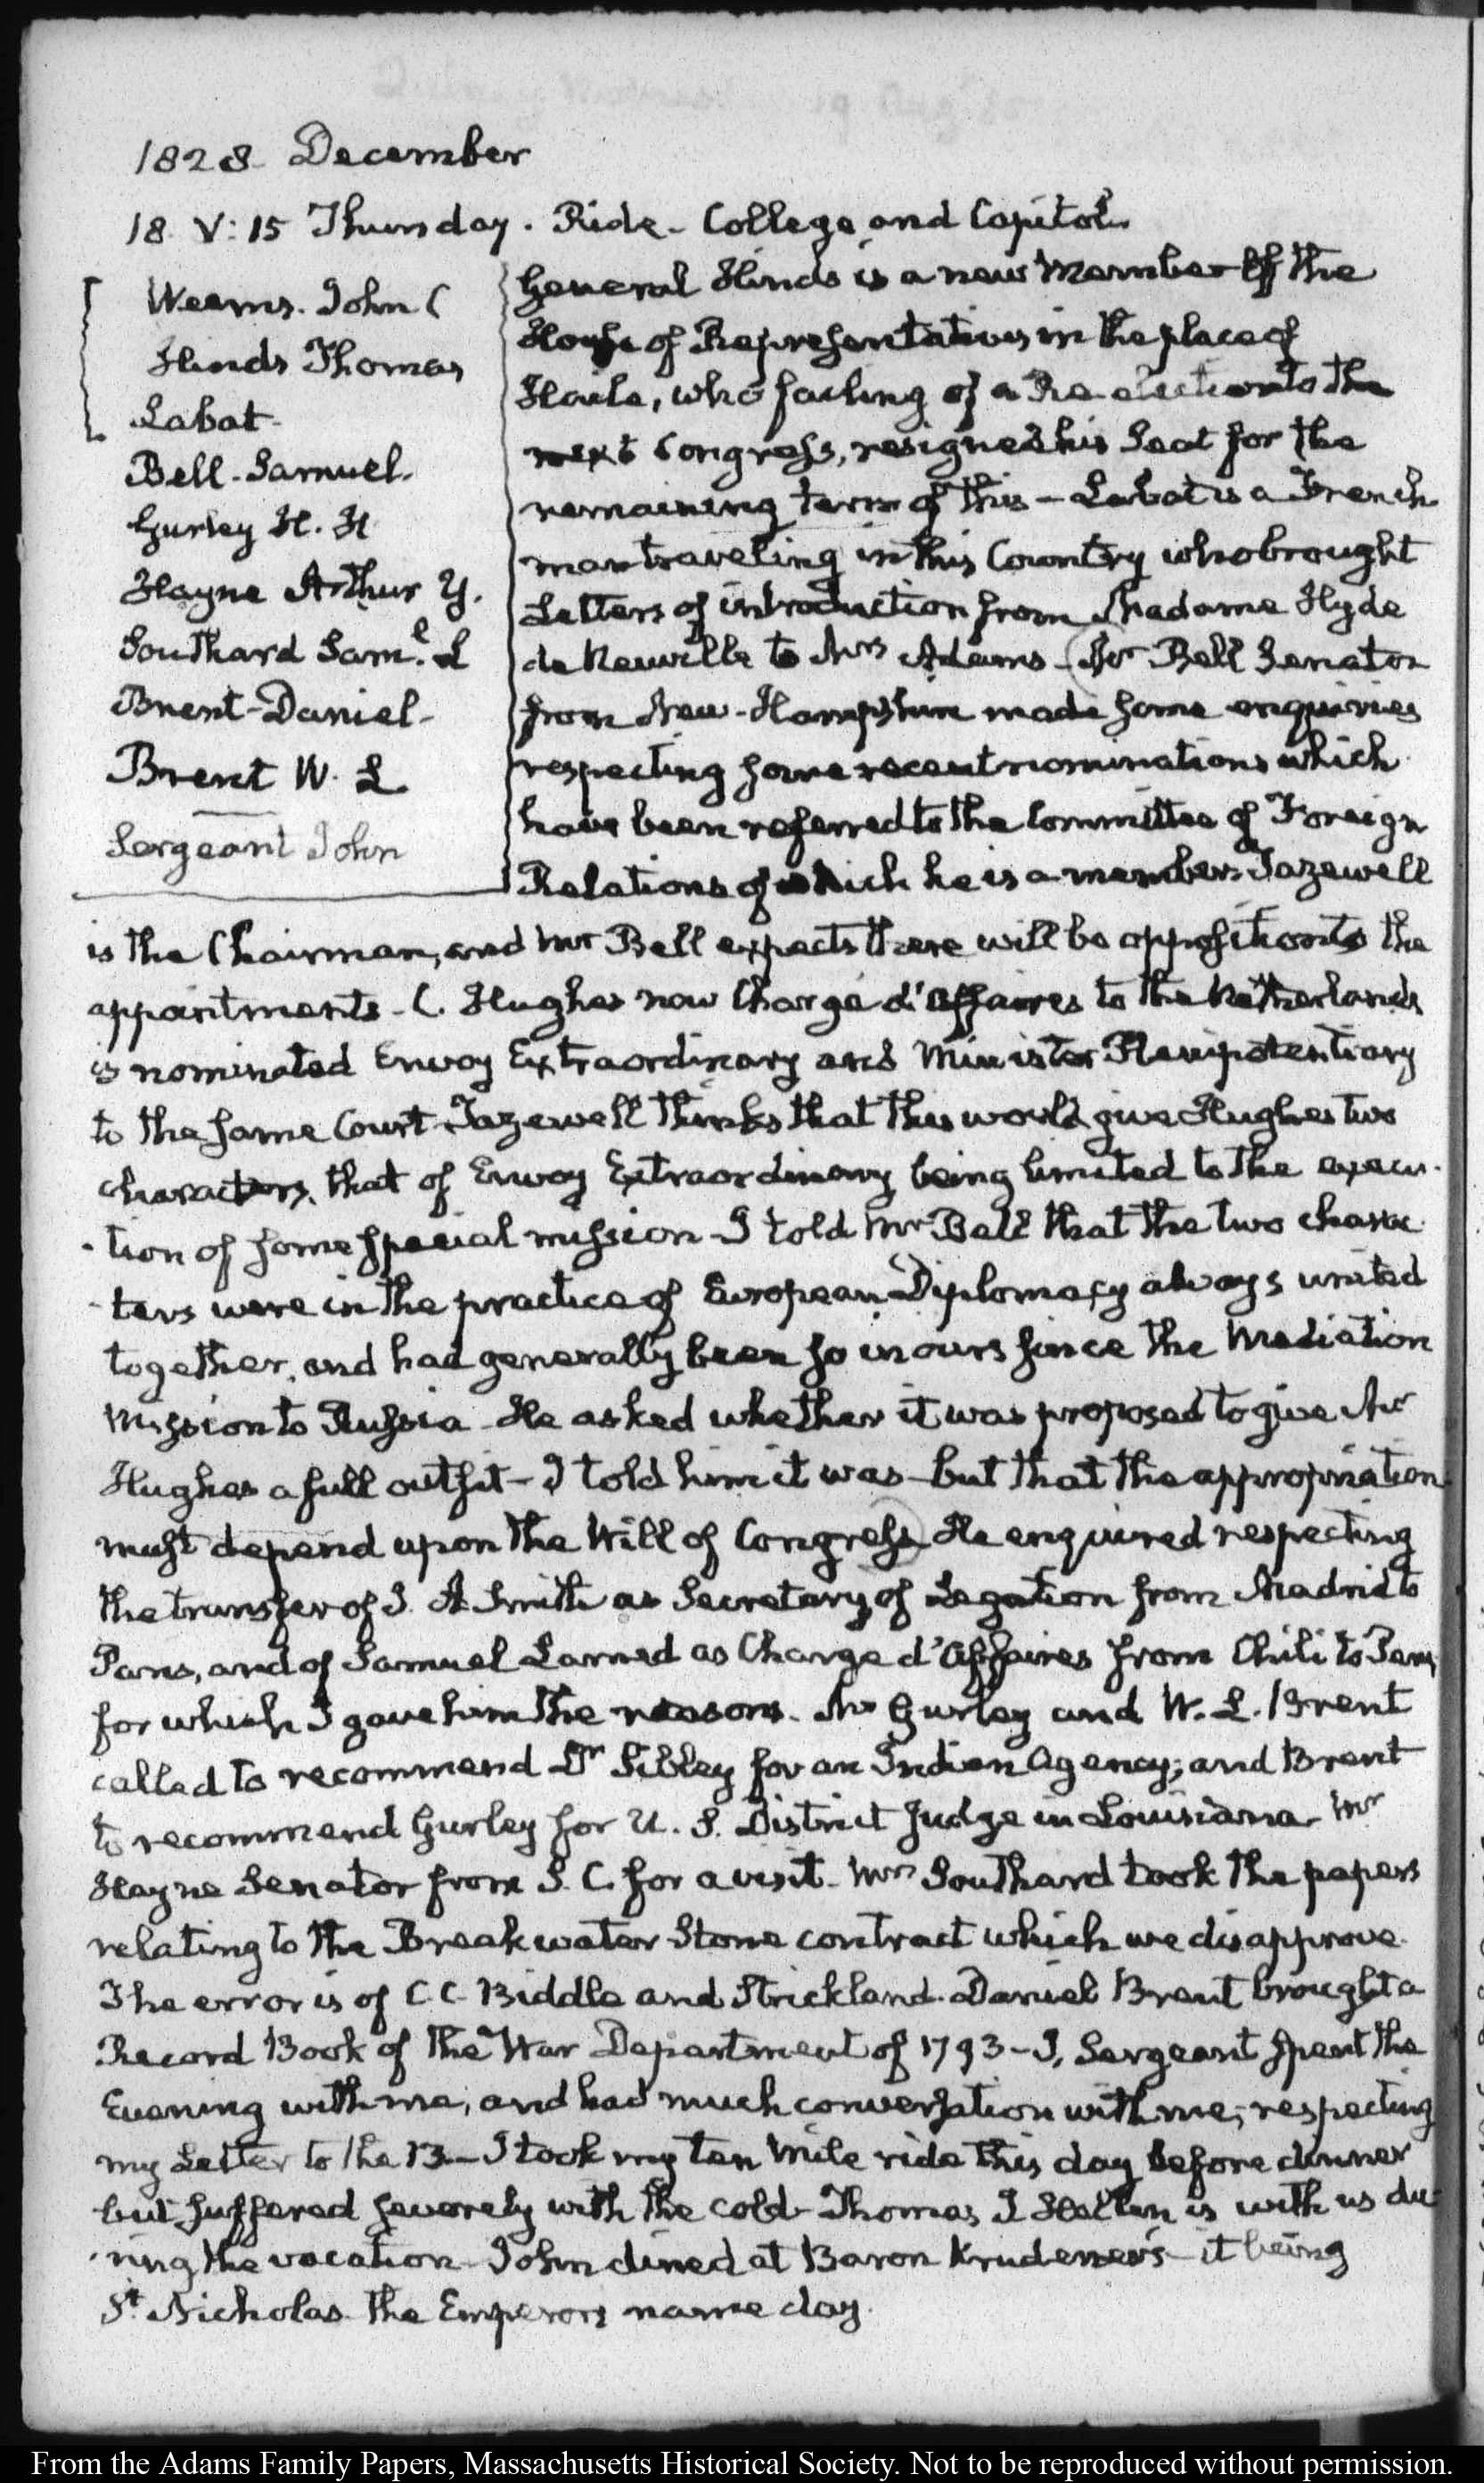 1828. December
18. V: 15 Thursday. Ride - College and Capitol.
Weems. John C
Hinds Thomas
Labat.
Bell - Samuel.
Gurley H. H
Hayne Arthur Y.
Southard Saml. L
Brent - Daniel -
Brent W. L
Sergeant John
General Hinds is a new Member of the
House of Representatives in the place of
Haile, who failing of a Re-election to the
next Congress, resigned his Seat for the
remaining term of this - Labat is a French
man traveling in this Country who brought
Letters of introduction from Madame Hyde
de Neuville to Mrs Adams - Mr Bell Senator
from New-Hampshire made some enquiries
respecting some recent nominations which
have been referred to the Committee of Foreign
Relations of which he is a member. Tazewell
is the Chairman, and Mr Bell expects there will be opposition to the
appointments - C. Hughes now Chargé d'Affaires to the Netherlands
is nominated Envoy Extraordinary and Minister Plenipotentiary
to the same Court - Tazewell thinks that this would give Hughes two
characters, that of Envoy Extraordinary being limited to the execu-
-tion of some special mission - I told Mr Bell that the two charac-
-ters were in the practice of European Diplomacy always united
together, and had generally been so in ours since the Mediation
Mission to Russia - He asked whether it was proposed to give Mr
Hughes a full outfit - I told him it was - but that the appropriation
must depend upon the Will of Congress. He enquired respecting
the transfer of J. A Smith as Secretary of Legation from Madrid to
Paris, and of Samuel Larned as Charge d'Affaires from Chili to Peru
for which I gave him the reasons. Mr Gurley and W. L. Brent
called to recommend Dr Sibley for an Indian Agency; and Brent
to recommend Gurley for U. S. District Judge in Louisiana - Mr
Hayne Senator from S. C. for a visit - Mr Southard took the papers
relating to the Breakwater Stone contract which we disapprove.
The error is of C. C. Biddle and Strickland. Daniel Brent brought a
Record Book of the War Department of 1793 - J. Sergeant spent the
Evening with me, and had much conversation with me, respecting
my Letter to the 13 - I took my ten Mile ride this day before dinner
but suffered severely with the cold - Thomas J Hellen is with us du-
-ring the vacation - John dined at Baron Krudener's - it being
St. Nicholas the Emperors name day.
From the Adams Family Papers, Massachusetts Historical Society. Not to be reproduced without permission.